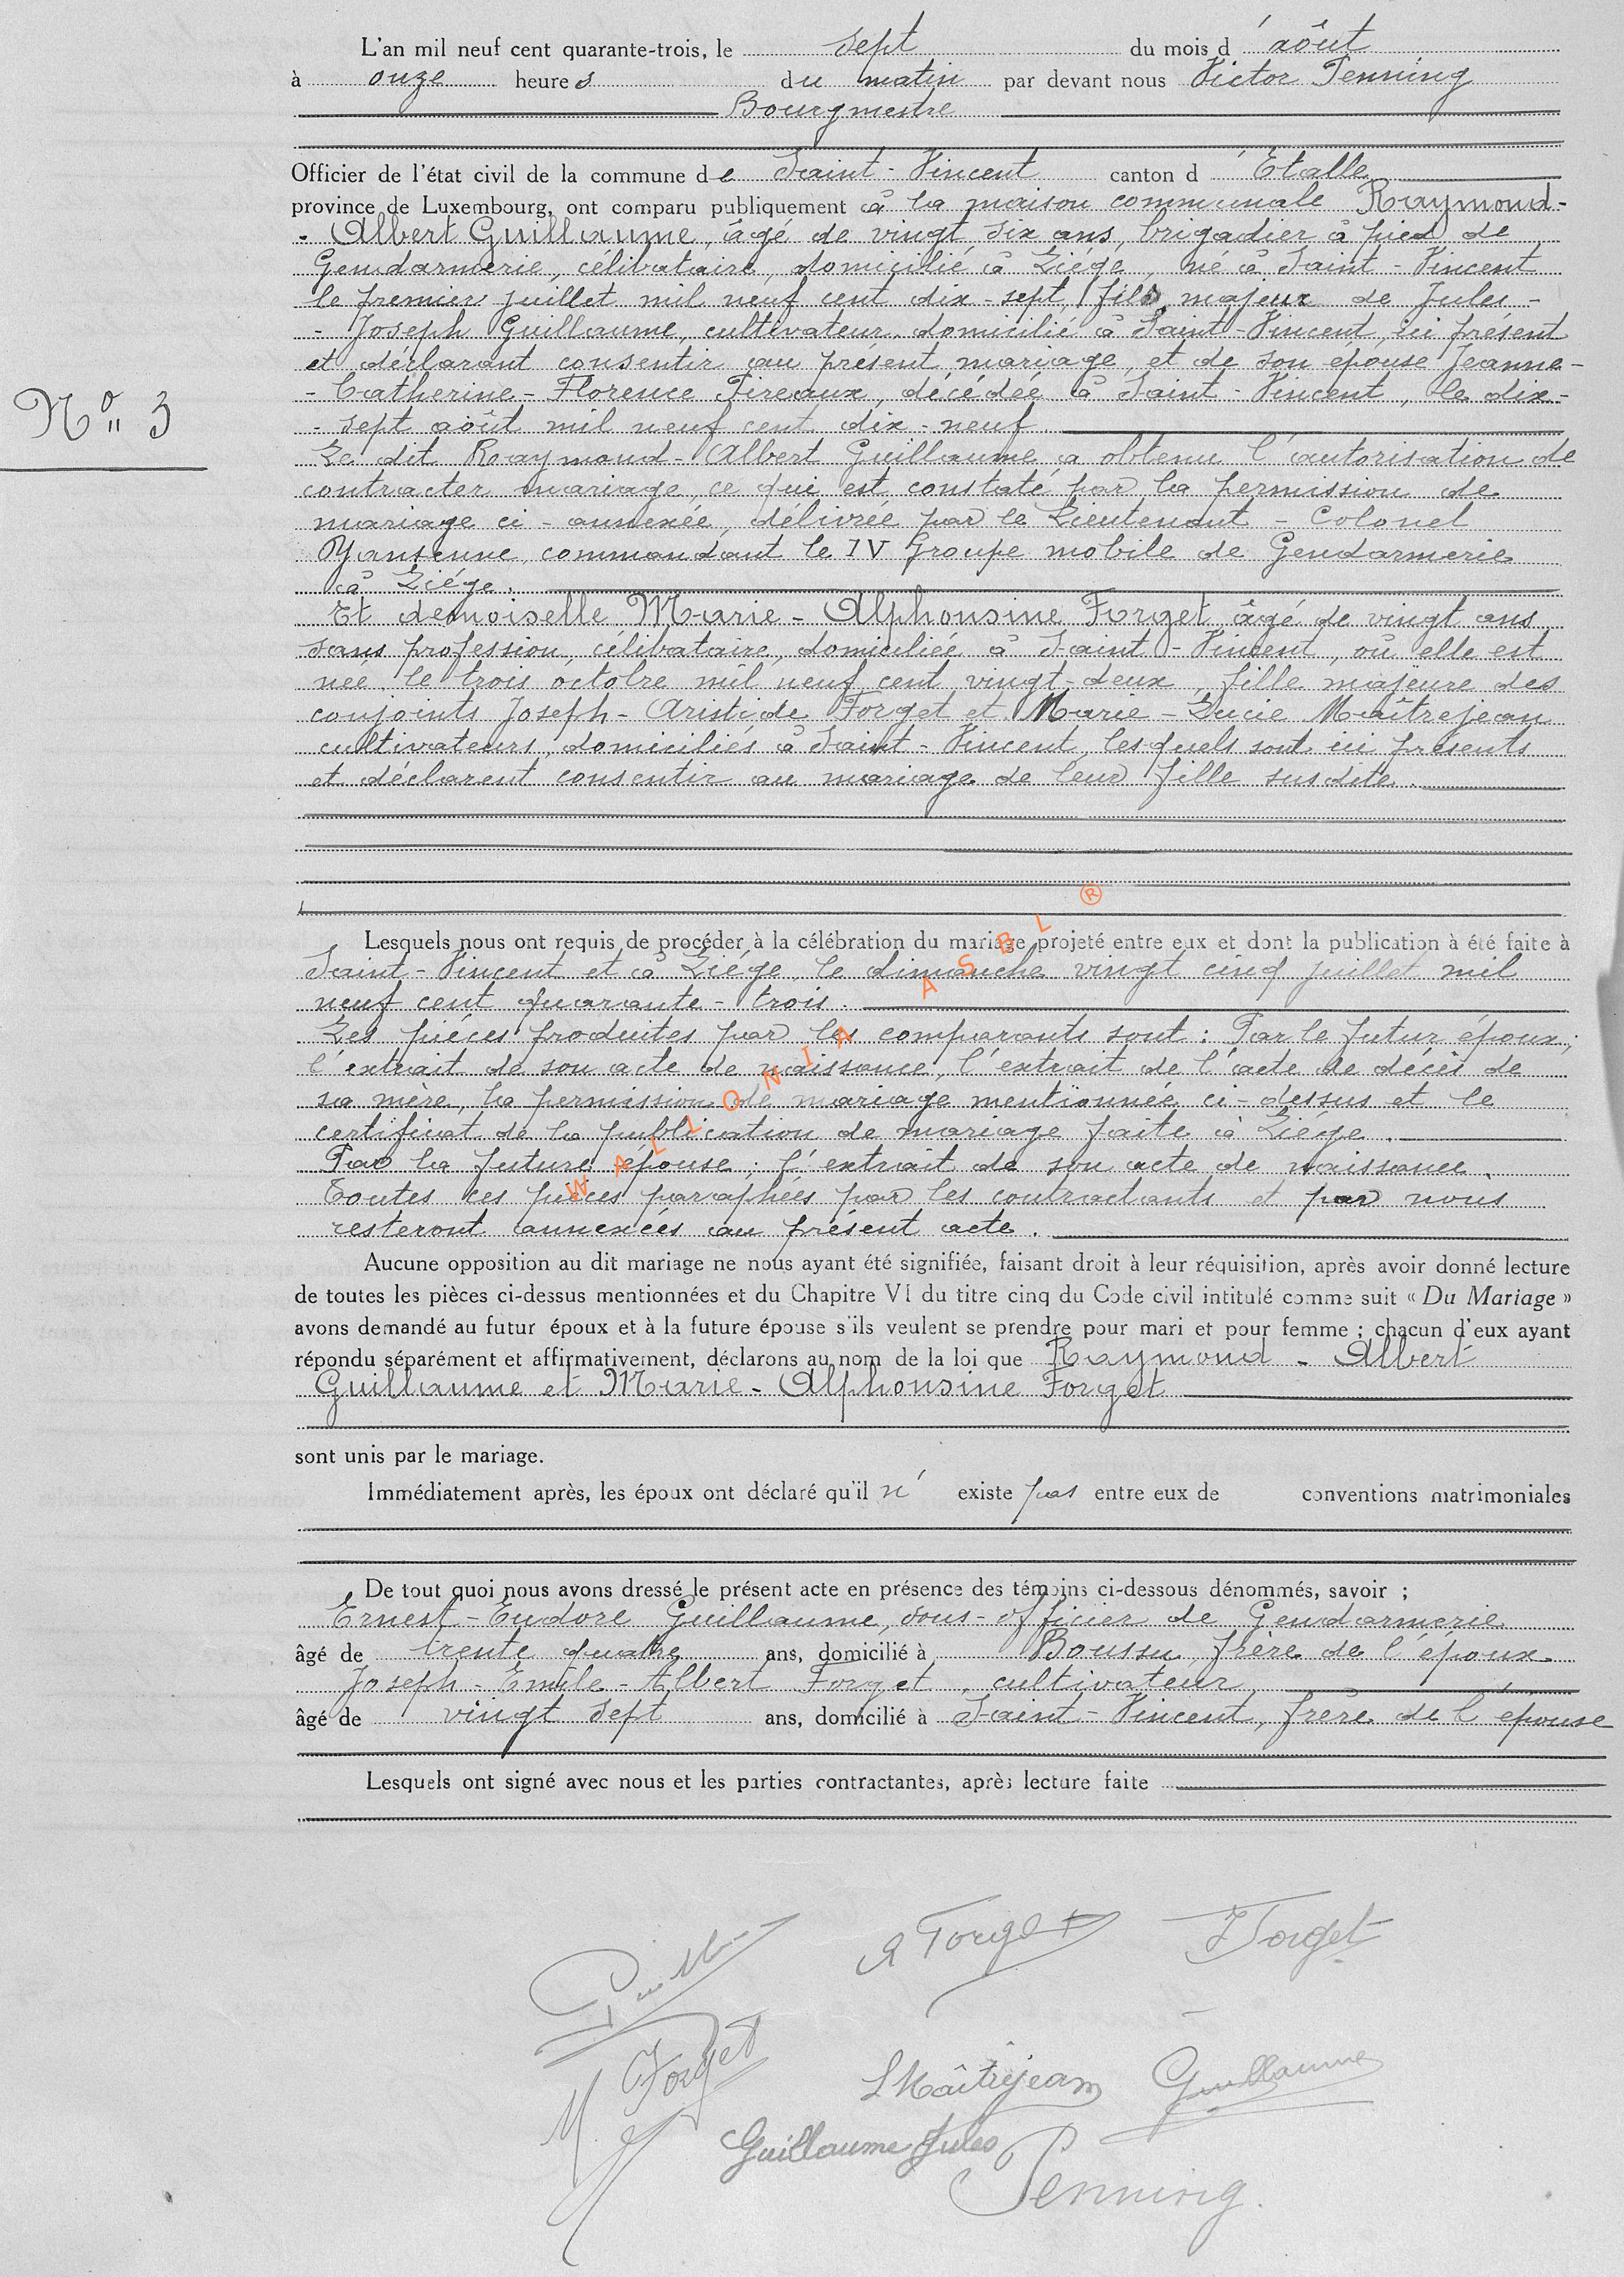 L'an mil neuf cent quarante-trois, le sept du mois d' août
à onze heures du matin par devant nous Victor Penning
Bourgmestre
Officier de l'état civil de la commune de Saint-Vincent canton d'Etalle
province de Luxembourg, ont comparu publiquement à la maison communale Raymond-
- Albert Guillaume, âgé de vingt six ans, brigadier à pied de
Gendarmerie, célibataire, domicilié à Liége, né à Saint-Vincent
le premier juillet mil neuf cent dix-sept, fils majeur de Jules-
- Joseph Guillaume, cultivateur domicilié à Saint-Vincent, ici présent
et déclarant consentir au présent mariage, et de son épouse Jeanne-
- Catherine-Florence Pireaux, décédée à Saint-Vincent, le dix-
Nº 3
- sept août mil neuf cent dix-neuf.
Le dit Raymond-Albert Guillaume a obtenu l'autorisation de
contracter mariage, ce qui est constaté par la permission de
mariage ci-annexée, délivrée par le Lieutenant-Colonel
commandant le IV Groupe mobile de Gendarmerie
à Liége.
Et demoiselle Marie-Alphonsine Forget, âgé de vingt ans
sans profession, célibataire, domiciliée à Saint-Vincent, où elle est
née le trois octobre mil neuf cent vingt-deux, fille majeure des
conjoints Joseph-Aristide Forget et Marie-Lucie Maîtrejean
cultivateurs, domiciliés à Saint-Vincent, lesquels sont ici présents
et déclarent consentir au mariage de leur fille susdite.
Lesquels nous ont requis de procéder à la célébration du mariage projeté entre eux et dont la publication à été faite à
Saint-Vincent et à Liége, le dimanche vingt cinq juillet mil
neuf cent quarante-trois.
Les pièces produites par les comparants sont: Par le futur époux;
l'extrait de son acte de naissance, l'extrait de l'acte de décès de
sa mère, la permission de mariage mentionnée ci-dessus et le
certificat de la publication de mariage faite à Liége.
Par la future épouse; l'extrait de son acte de naissance.
Toutes ces pièces paraphées par les contractants et par nous
resteront annexées au présent acte.
WALLONIA ASBL ®
Aucune opposition au dit mariage ne nous ayant été signifiée, faisant droit à leur réquisition, après avoir donné lecture
de toutes les pièces ci-dessus mentionnées et du Chapitre VI du titre cinq du Code civil intitulé comme suit « Du Mariage »
avons demandé au futur époux et à la future épouse s'ils veulent se prendre pour mari et pour femme ; chacun d'eux ayant
répondu séparément et affirmativement, déclarons au nom de la loi que Raymond-Albert
Guillaume et Marie-Alphonsine Forget
sont unis par le mariage.
Immédiatement après, les époux ont déclaré qu'il n' existe pas entre eux de conventions matrimoniales
De tout quoi nous avons dressé le présent acte en présence des témoins ci-dessous dénommés, savoir ;
Ernest-Eudore Guillaume, sous-officier de Gendarmerie
âgé de trente quatre ans, domicilié à Boussu, frère de l'époux
Joseph-Emile-Albert Forget, cultivateur
âgé de vingt sept ans, domicilié à Saint-Vincent, frère de l'épouse
Lesquels ont signé avec nous et les parties contractantes, après lecture faite
A Forget J Forget
M. Forget
L Maîtrejean Guillaume
Guillaume Jules
Penning.